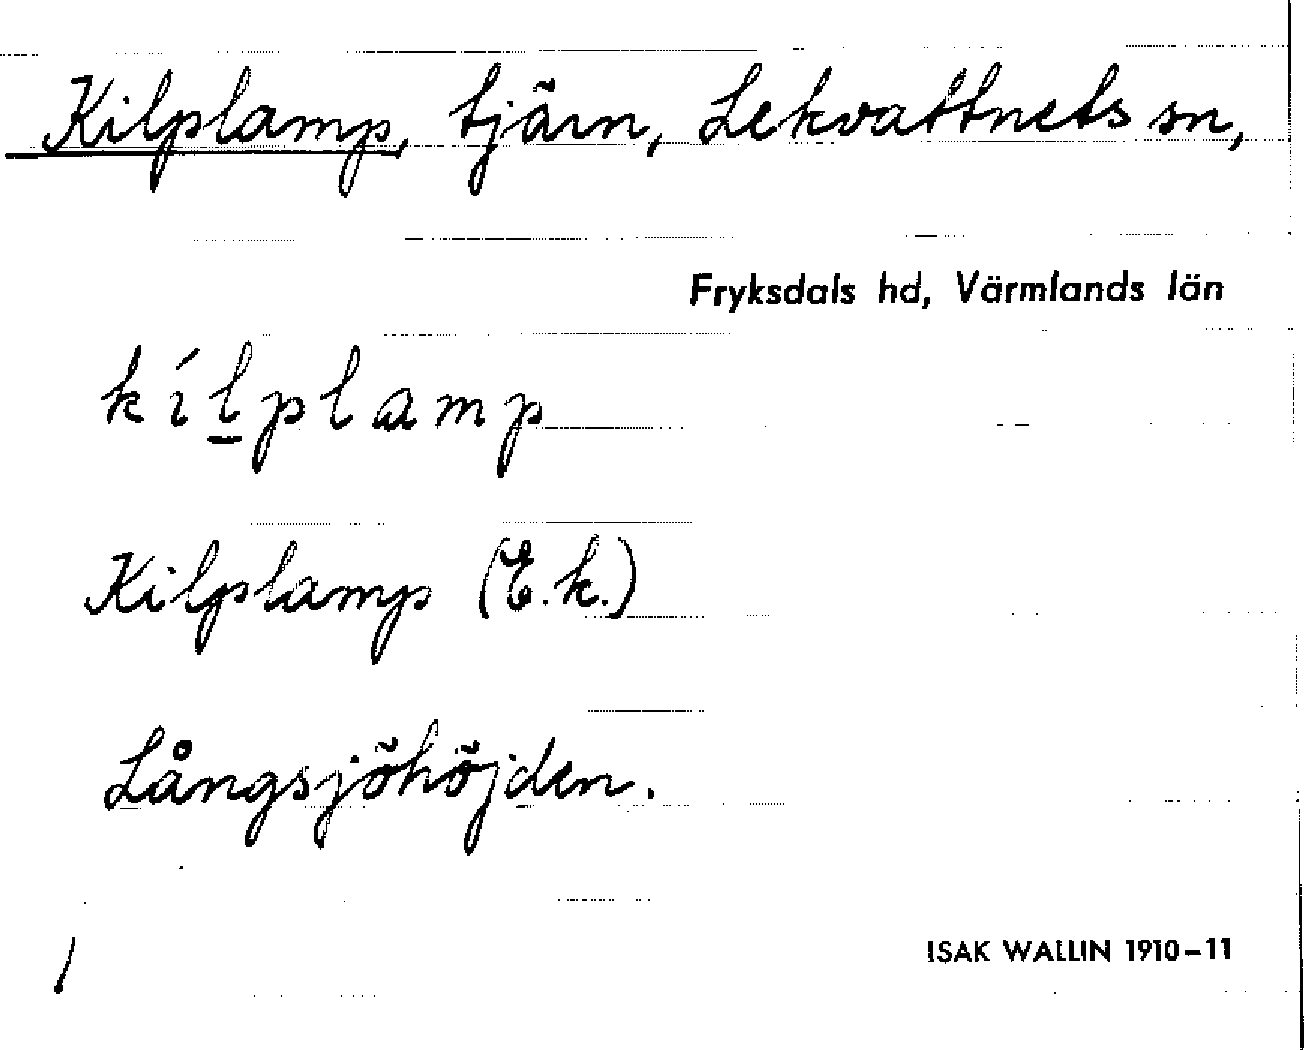 Kilplamp, tjärn, Lekvattnets sn,
Fryksdals hd, Värmlands län
kíl̲plamp
Kilplamp (E.k.)
Långsjöhöjden.
/
ISAK WALLIN 1910–11